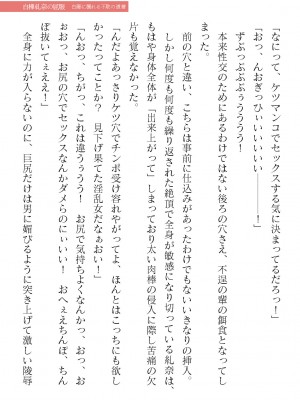 「なにって、ケツマンコでセックスする気に決まってるだろっ！」
「おっ、んおぎっひぃいいいいいい　　　　　　！」
ずぶっぶぶぶぅうううう！
本来性交のためにあるわけではない後ろの穴さえ、不逞の輩の餌食となってし
まった。
前の穴と違い、こちらは事前に仕込みがあったわけでもないいきなりの挿入。
しかし何度も何度も繰り返された絶頂で全身が敏感になり切っている紮奈は、
もはや身体全体が「出来上がって」しまっており太い肉棒の侵入に際し苦痛の欠
片も覚えなかった。
「んだよあっさりケツ穴でチンポ受け容れやがってよ、ほんとはこっちにも欲し
かったってことか？　見下げ果てた淫乱女だなぁおい！」
「んおっ、ちがっ、これは違うぅうう！　お尻で気持ちよくなんかっ、おっ、お
おっ、お尻の穴でセックスなんかダメらのにぃいい！　おへぇえちんぽ、ちん
ぽ抜いてぇええ！」
全身に力が入らないのに、巨尻だけは男に媚びるように突き上げて激しい陵辱